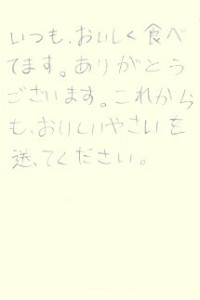 いつも、おいしく食べ
てます。ありがとう
ございます。これから
も、おいしいやさいを
送ってください。